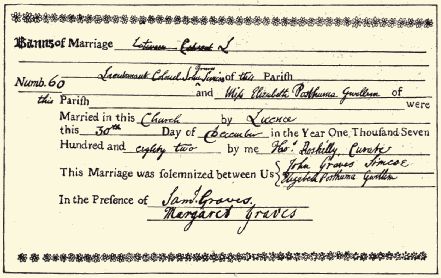 Banns of Marriage between Colonel S
Lieutenant Colonel John Graves Simcoe of this Parish
Numb. 60
and Miss Elizabeth Posthuma Gwillim of
this Parish were
Married in this Church by Licence
this 30th Day of December in the Year One Thousand Seven
Hundred and eighty two by me Thos. Roskilly Curate
This Marriage was solemnized between Us John Graves Simcoe
Elizabeth Posthuma Gwillim
In the Presence of Saml. Graves
Margaret Graves